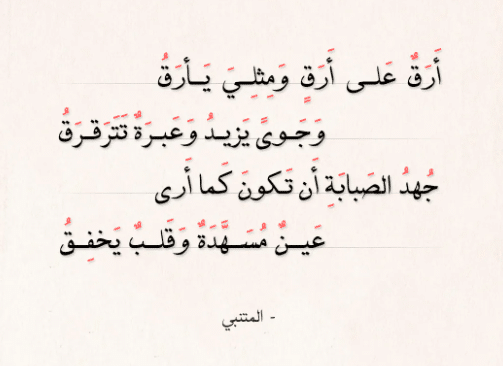 أَرَقٌ عَلـى أَرَقٍ وَمِثلِـيَ يَـأرَقُ
وَجَـوىً يَزيـدُ وَعَبـرَةٌ تَتَرَقـرَقُ
جُهدُ الصَبابَةِ أَن تَـكونَ كَما أَرى
عَيـنٌ مُسَـهَّدَةٌ وَقَلـبٌ يَخفِـقُ
- المتنبي